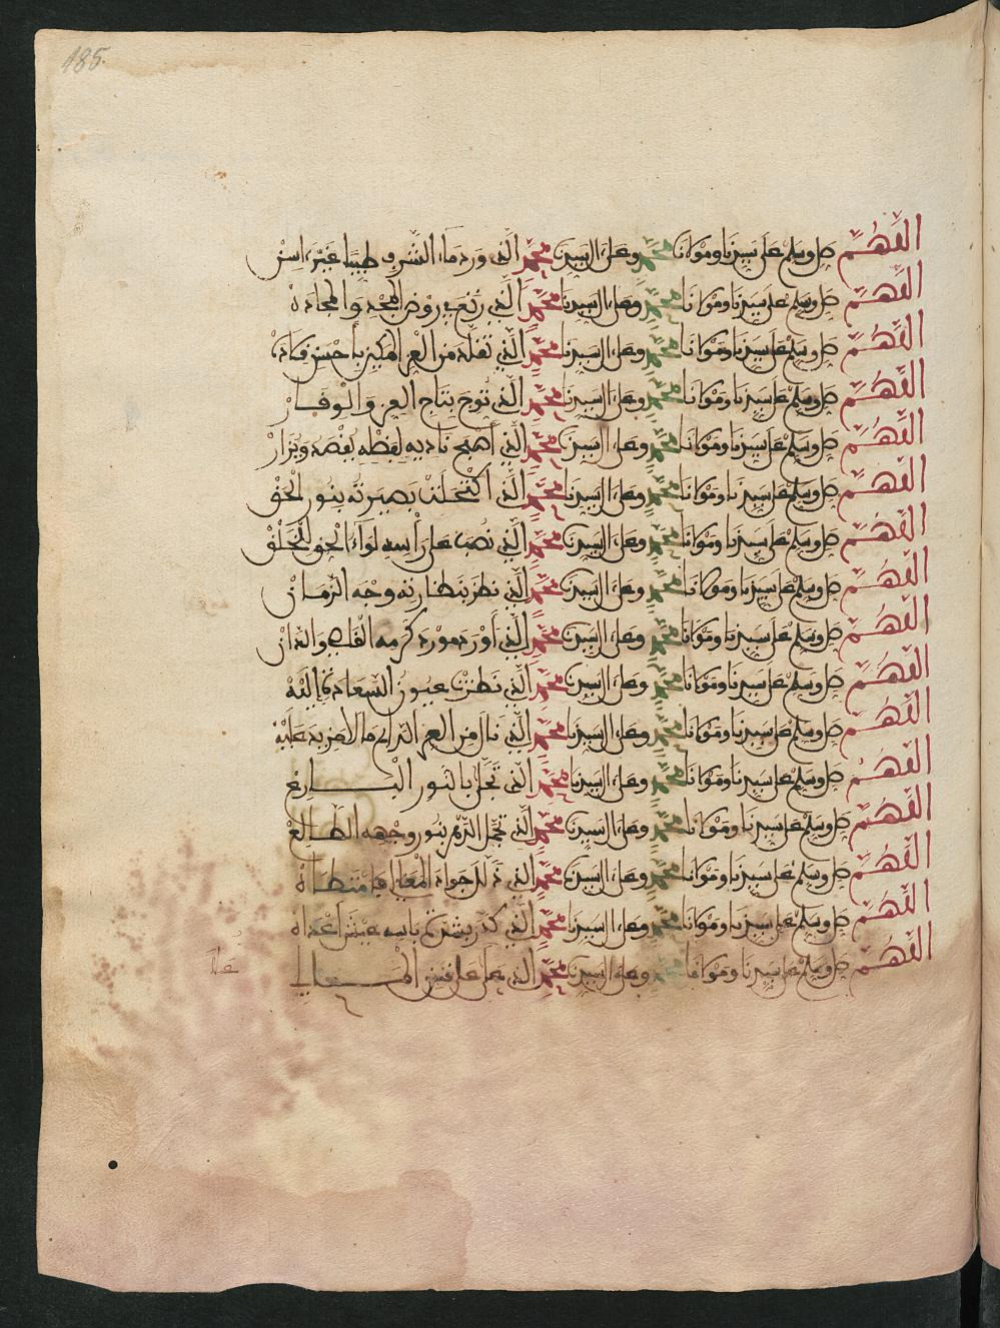 185.
اللهم صل وسلم على سيدنا ومولانا محمد وعلى ال سيدنا محمد الذي ورد ماء الشرف طيبا غير اسن
اللهم صل وسلم على سيدنا ومولانا محمد وعلى ال سيدنا محمد الذي رتع في روض المجد والمجادة
اللهم صل وسلم على سيدنا ومولانا محمد وعلى ال سيدنا محمد الذي تقلد من العز المكين باحسن قلادة
اللهم صل وسلم على سيدنا ومولانا محمد وعلى ال سيدنا محمد الذي توج بتاج العز والوقار
اللهم صل وسلم على سيدنا ومولانا محمد وعلى ال سيدنا محمد الذي ناديه يقصد ويزار
اللهم صل وسلم على سيدنا ومولانا محمد وعلى ال سيدنا محمد الذي اكتحلت بصيرته بنور الحق
اللهم صل وسلم على سيدنا ومولانا محمد وعلى ال سيدنا محمد الذي نصب على رأسه لواء الحق للخلق
اللهم صل وسلم على سيدنا ومولانا محمد وعلى ال سيدنا محمد الذي نظر بنظارته وجه الزمان
اللهم صل وسلم على سيدنا ومولانا محمد وعلى ال سيدنا محمد الذي أورد مورد كرمه القاصي والدان
اللهم صل وسلم على سيدنا ومولانا محمد وعلى ال سيدنا محمد الذي نظرت عيون السعادة إليه
اللهم صل وسلم على سيدنا ومولانا محمد وعلى ال سيدنا محمد الذي نال من العز الذي ما لا مزيد عليه
اللهم صل وسلم على سيدنا ومولانا محمد وعلى ال سيدنا محمد الذي تجلى بالنور البارع
اللهم صل وسلم على سيدنا ومولانا محمد وعلى ال سيدنا محمد الذي تجمل الدهر بنور وجهه الطالع
اللهم صل وسلم على سيدنا ومولانا محمد وعلى ال سيدنا محمد الذي ذلل جواد المعالي فامتطاه
اللهم صل وسلم على سيدنا ومولانا محمد وعلى ال سيدنا محمد الذي كدر عيش أعداه
اللهم صل وسلم على سيدنا ومولانا محمد وعلى ال سيدنا محمد الذي المعالي